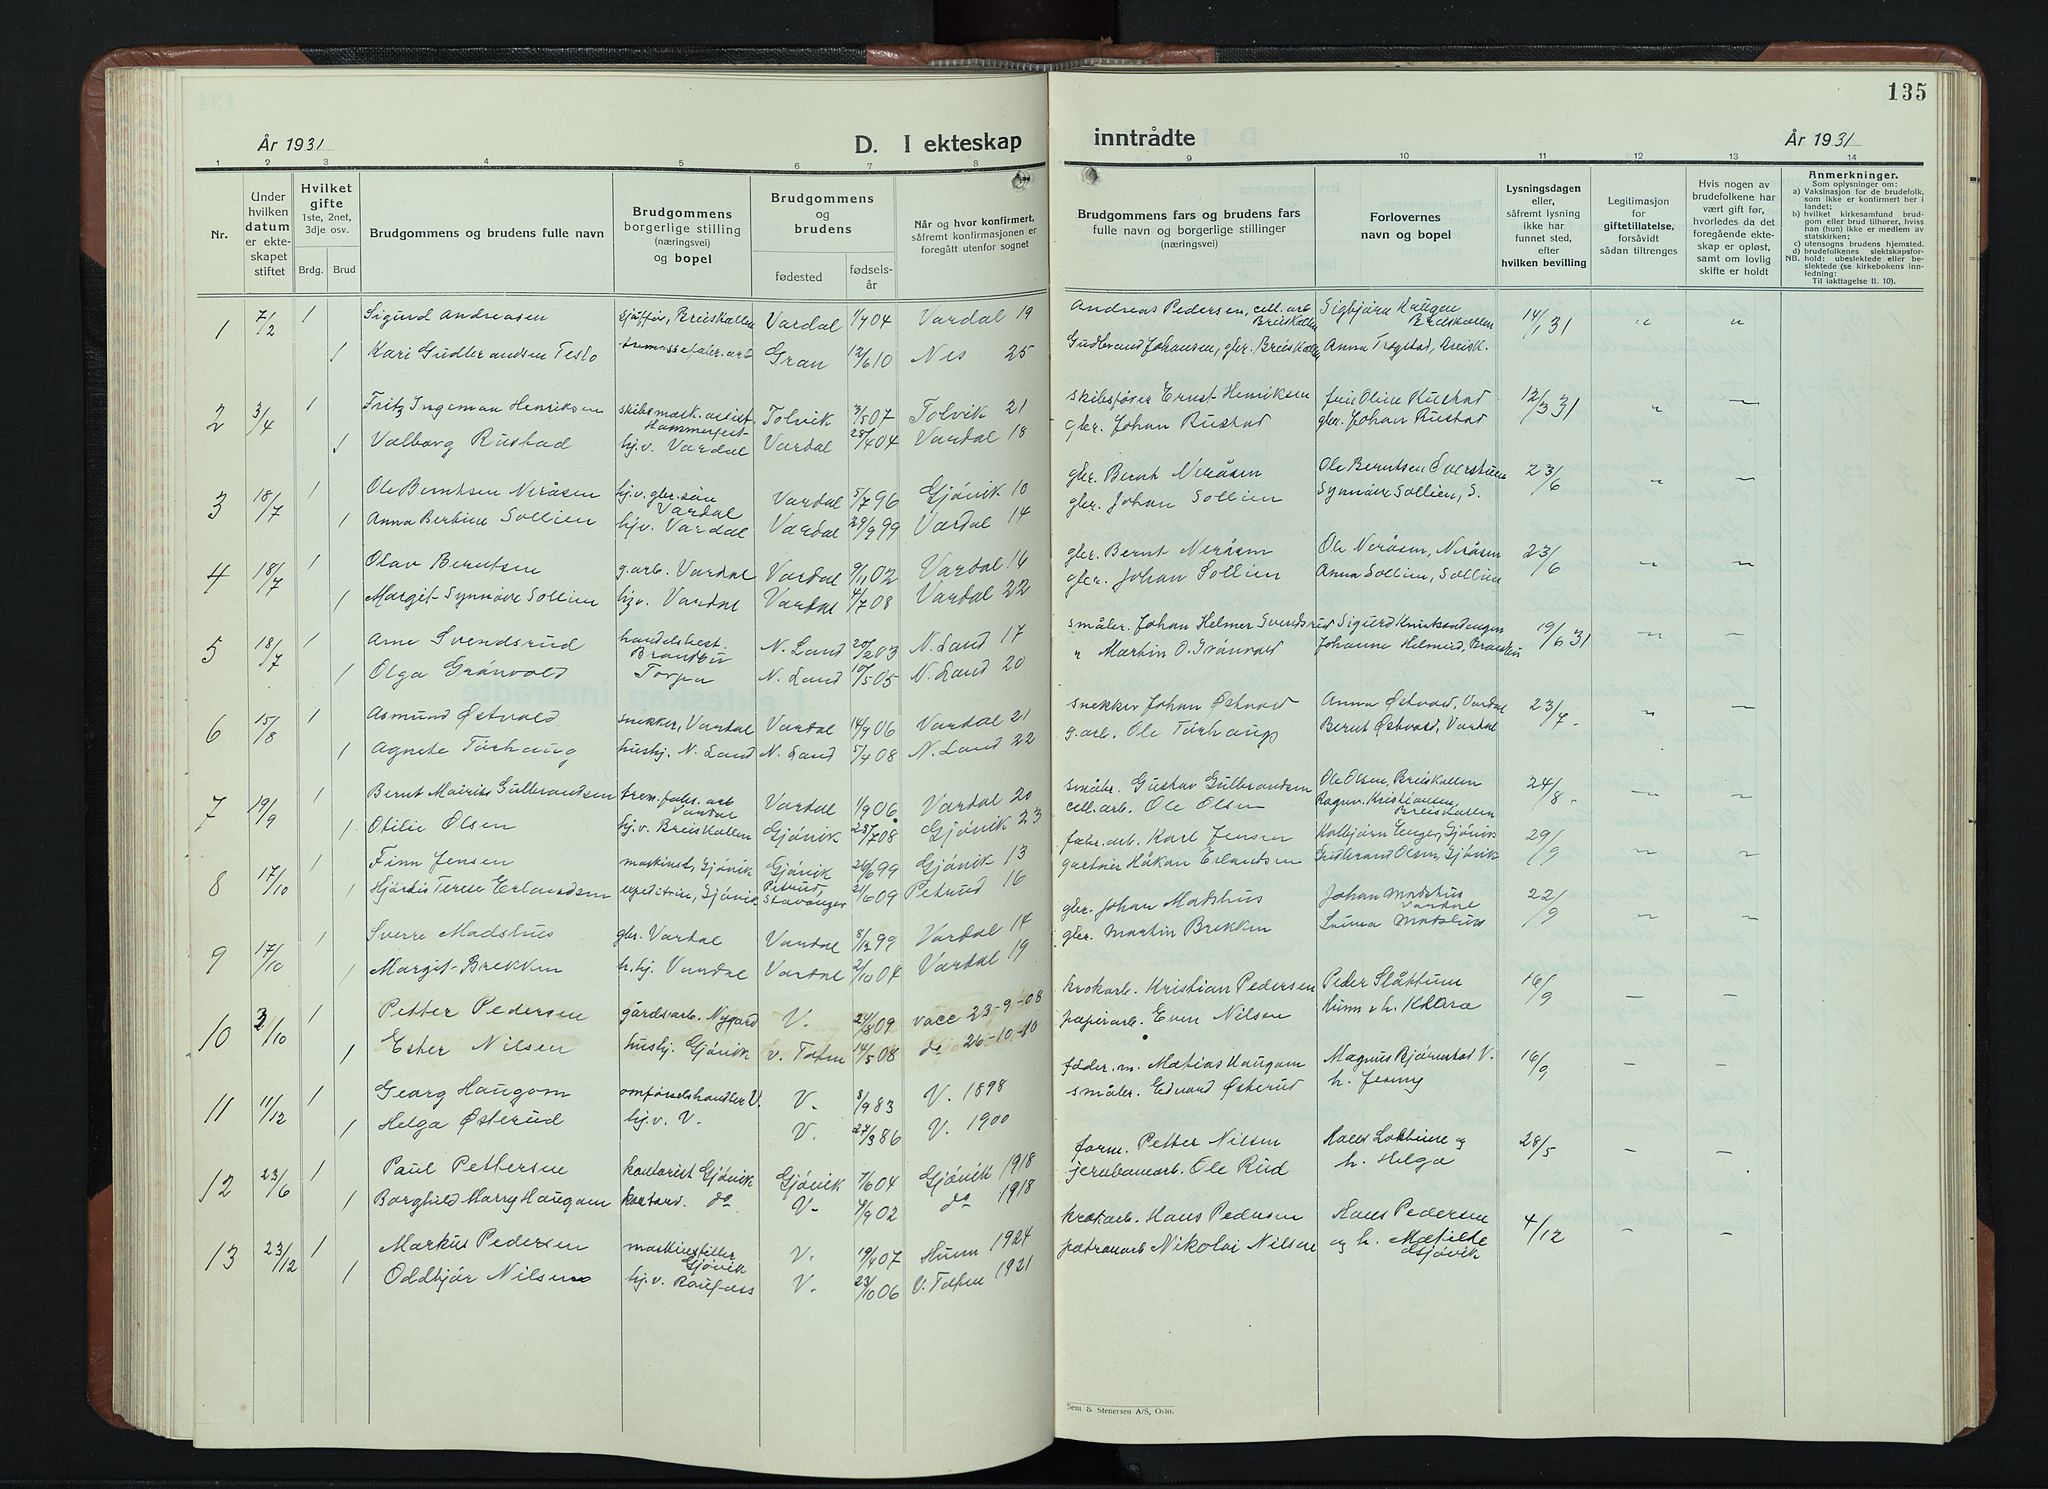 135
År 1931
D. I ekteskap inntrådte
År 1931
1 2 3 4 5 6 7 8 9 10 11 12 13 14
Nr.
Under hvilken datum er ekteskapet stiftet
Hvilket gifte
1ste, 2net, 3dje osv.
Brdg. Brud
Brudgommens og brudens fulle navn
Brudgommens borgerlige stilling (næringsvei) og bopel
Brudgommens og brudens
fødested fødselsår
Når og hvor konfirmert, såfremt konfirmasjonen er foregått utenfor sognet
Brudgommens fars og brudens fars fulle navn og borgerlige stillinger (næringsvei)
Forlovernes navn og bopel
Lysningsdagen eller, såfremt lysning ikke har funnet sted, efter hvilken bevilling
Legitimasjon for giftetillatelse, forsåvidt sådan tiltrenges
Hvis nogen av brudefolkene har vært gift før, hvorledes da det foregående ekteskap er opløst, samt om lovlig skifte er holdt
Anmerkninger.
Som oplysninger om:
a) Vaksinasjon for de brudefolk, som ikke er konfirmert her i landet;
b) hvilket kirkesamfund brudgom eller brud tilhører, hvis han (hun) ikke er medlem av statskirken;
c) utensogns brudens hjemsted.
d) brudefolkenes slektskapsforhold: ubeslektede eller beslektede (se kirkebokens innledning:
NB. Til iakttagelse II. 10).
1 7/2 1 Sigurd Andreasen sjåffør, Breiskallen Vardal 1/7 04 Vardal 19 Andreas Pedersen, cell. arb. Breiskallen Sigbjørn Haugen Breiskallen 14/1 31 " "
1 Kari Gudbrandsen Teslo Gran 12/6 10 Nes 25 Gudbrand Johansen, gbr. Breiskallen Anna Trøgstad, Breisk.
2 3/4 1 Fritz Ingeman Henriksen skibsmask. assist. Hammerfest Tolvik 3/5 07 Tolvik 21 skibsfører Ernst Henriksen fru Oline Rustad 12/3 31 " "
1 Valborg Rustad hj.v. Vardal Vardal 28/4 04 Vardal 18 gbr. Johan Rustad gbr. Johan Rustad
3 18/7 1 Ole Berntsen Neråsen hj.v. gbr. søn Vardal Vardal 5/7 96 Gjøvik 10 gbr. Bernt Neråsen Ole Berntsen 23/6 " "
1 Anna Bertine Sollien hjv. Vardal Vardal 29/9 99 Vardal 14 gbr. Johan Sollien Synnøve Sollien, S.
4 18/7 1 Olav Berntsen g.arb. Vardal Vardal 9/11 02 Vardal 16 gbr. Bernt Neråsen Ole Neråsen, Neråsen 23/6 " "
1 Margit Synnøve Sollien hjv. Vardal Vardal 4/7 08 Vardal 22 gbr. Johan Sollien Anna Sollien, Sollien
5 18/7 1 Arne Svendsrud handelsbest. Brandbu N. Land 20/2 03 N. Land 17 småbr. Johan Helmer Svendsrud Sigurd 19/6 31 " "
1 Olga Grønvold Torpa N. Land 10/5 05 N. Land 20 " Martin O. Grønvold Johanne Helmeid, Brandbu
6 15/8 1 Asmund Østvold snekker, Vardal Vardal 14/9 06 Vardal 21 snekker Johan Østvold Anna Østvold, Vardal 23/7. " "
1 Agnete Torhaug hushj. N. Land N. Land 5/4 08 N. Land 22 g.arb. Ole Torhaug Bernt Østvold, Vardal
7 19/9 1 Bernt Maurits Gulbrandsen trem. fabr. arb Vardal Vardal 1/9 06 Vardal 20 småbr. Gustav Gulbrandsen Ole Olsen, Breiskallen 24/8. " "
1 Otilie Olsen hj.v. Breiskallen Gjøvik 28/7 08 Gjøvik 23 cell. arb. Ole Olsen Ragnv. Kristiansen, Breiskallen
8 17/10 1 Finn Jensen maskinist, Gjøvik Gjøvik 26/6 99 Gjøvik 13 fabr. arb. Karl Jensen Kolbjørn Enger, Gjøvik 29/9 " "
1 Hjørdis Terese Erlandsen expeditrise, Gjøvik Petrud, Stavanger 21/6 09 Petrud 16 gartner Håkon Erlandsen Gudbrand Olsen, Gjøvik
9 17/10 1 Sverre Madshus gbr. Vardal Vardal 8/12 99 Vardal 14 gbr. Johan Madshus Johan Madshus Vardal 22/9 " "
1 Margit Brekken h.hj. Vardal Vardal 2/10 04 Vardal 19 gbr. Martin Brekken Madshus
10 3/10 1 Petter Pedersen gårdsarb. Nygard V. 24/8 09 vacc 23-9-08 krokarb. Kristian Pedersen Peder Slåttum 16/9 - -
1 Ester Nilsen hushj. Gjøvik v. Toten 14/5 08 do 26-10-10 papirarb. Even Nilsen Hunn og h. Klara
11 11/12 1 Georg Haugom omførselshandler V. V. 8/9 83 V. 1898 føder. m. Matias Haugom Magnus Bjørnstad V. 16/9 - -
1 Helga Østerud hj.v. V. V. 27/3 86 V. 1900 småbr. Edvard Østerud h. Jenny
12 23/6 1 Paul Pettersen kontorist Gjøvik Gjøvik 7/6 04 Gjøvik 1918 form. Petter Nilsen Hans og 28/5 - -
1 Borghild Marry Haugom kontord. do V. 4/9 02 do 1918 jernbanearb. Ole Rud h. Helga
13 23/12 1 Markus Pedersen Gjøvik V. 19/4 07 Hunn 1924 krokarb. Hans Pedersen Hans Pedersen 4/12 - -
1 Oddbjør Nilsen hj.v. Raufoss V. 23/10 06 V. Toten 1921 patronarb Nikolai Nilsen og h. Matilde Gjøvik
Sem & Stenersen A/S, Oslo.